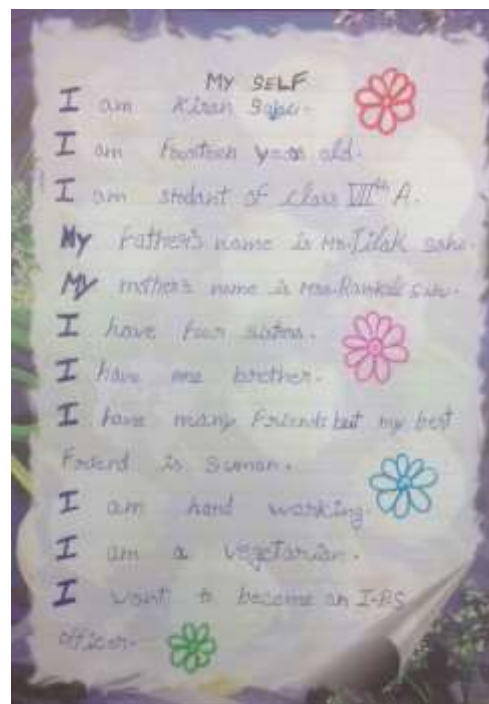 MY SELF
I am Kiran Sahu.
I am Fourteen years old.
I am student of class VIIth A.
My Father's name is Mr. Tilak sahu.
My mother's name is Mrs.
I have four sisters.
I have one brother.
I have many Friends but my best
Friend is Suman.
I am hard working.
I am a vegetarian.
I want to become an I.P.S
officer.